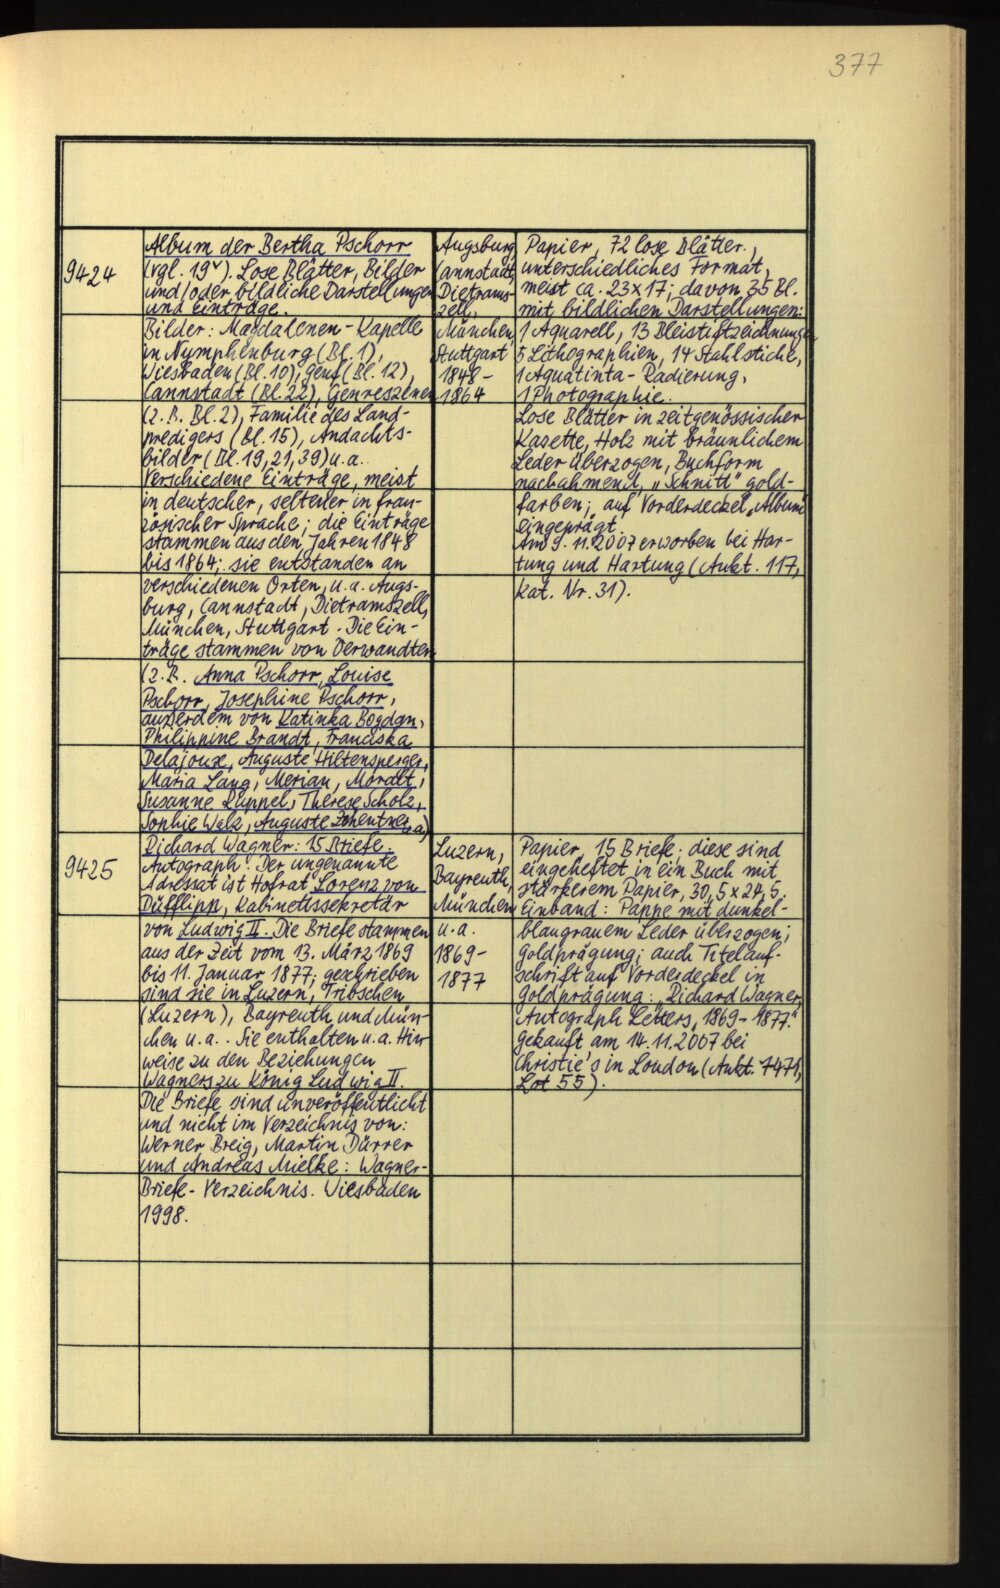 377
9424
Album der Bertha Pschorr
(vgl. 19ᵛ). Lose Blätter, Bilder
und/oder bildliche Darstellungen
und Einträge.
Bilder: Magdalenen-Kapelle
in Nymphenburg (Bl. 1),
Wiesbaden (Bl. 10), Genf (Bl. 12),
Cannstadt (Bl. 22), Genreszenen
(z.B. Bl. 2), Familie des Land-
predigers (Bl. 15), Andachts-
bilder (Bl. 19, 21, 39) u.a.
Verschiedene Einträge, meist
in deutscher, seltener in fran-
zösischer Sprache; die Einträge
stammen aus den Jahren 1848
bis 1864; sie entstanden an
verschiedenen Orten, u.a. Augs-
burg, Cannstadt, Dietramszell,
München, Stuttgart. Die Ein-
träge stammen von Verwandten
(z.B. Anna Pschorr, Louise
Pschorr, Josephine Pschorr,
außerdem von Katinka Bogdan,
Philippine Brandt, Franciska
Delajoux, Auguste Hiltensperger,
Maria Lang, Merian, Moralt,
Susanne Ruppel, Therese Scholz,
Sophie Walz, Auguste Zehentner u.a)
Augsburg
Cannstadt,
Dietrams-
zell,
München,
Stuttgart
1848-
1864
Papier, 72 lose Blätter.,
unterschiedliches Format,
meist ca. 23x17; davon 35 Bl.
mit bildlichen Darstellungen:
1 Aquarell, 13 Bleistiftzeichnungen
5 Lithographien, 14 Stahlstiche,
1 Aquatinta-Radierung,
1 Photographie.
Lose Blätter in zeitgenössischer
Kasette, Holz mit bräunlichem
Leder überzogen, Buchform
nachahmend, „Schnitt" gold-
farben; auf Vorderdeckel „Album"
eingeprägt.
Am 9.11.2007 erworben bei Har-
tung und Hartung (Aukt. 117,
Kat. Nr. 31).
9425
Richard Wagner: 15 Briefe.
Autograph. Der ungenannte
Adressat ist Hofrat Lorenz von
Düfflipp, Kabinettssekretär
von Ludwig II. Die Briefe stammen
aus der Zeit vom 13. März 1869
bis 11. Januar 1877; geschrieben
sind sie in Luzern, Tribschen
(Luzern), Bayreuth und Mün-
chen u.a.. Sie enthalten u.a. Hin-
weise zu den Beziehungen
Wagners zu König Ludwig II.
Die Briefe sind unveröffentlicht
und nicht im Verzeichnis von:
Werner Breig, Martin Dürrer
und Andreas Mielke: Wagner-
Briefe-Verzeichnis. Wiesbaden
1998.
Luzern,
Bayreuth,
München
u.a.
1869-
1877
Papier, 15 Briefe; diese sind
eingeheftet in ein Buch mit
stärkerem Papier, 30,5 x 24,5.
Einband: Pappe mit dunkel-
blaugrauem Leder überzogen;
Goldprägung; auch Titelauf-
schrift auf Vorderdeckel in
Goldprägung: „Richard Wagner,
Autograph Letters, 1869-1877."
Gekauft am 14.11.2007 bei
Christie's in London (Aukt. 7471,
Lot 55).